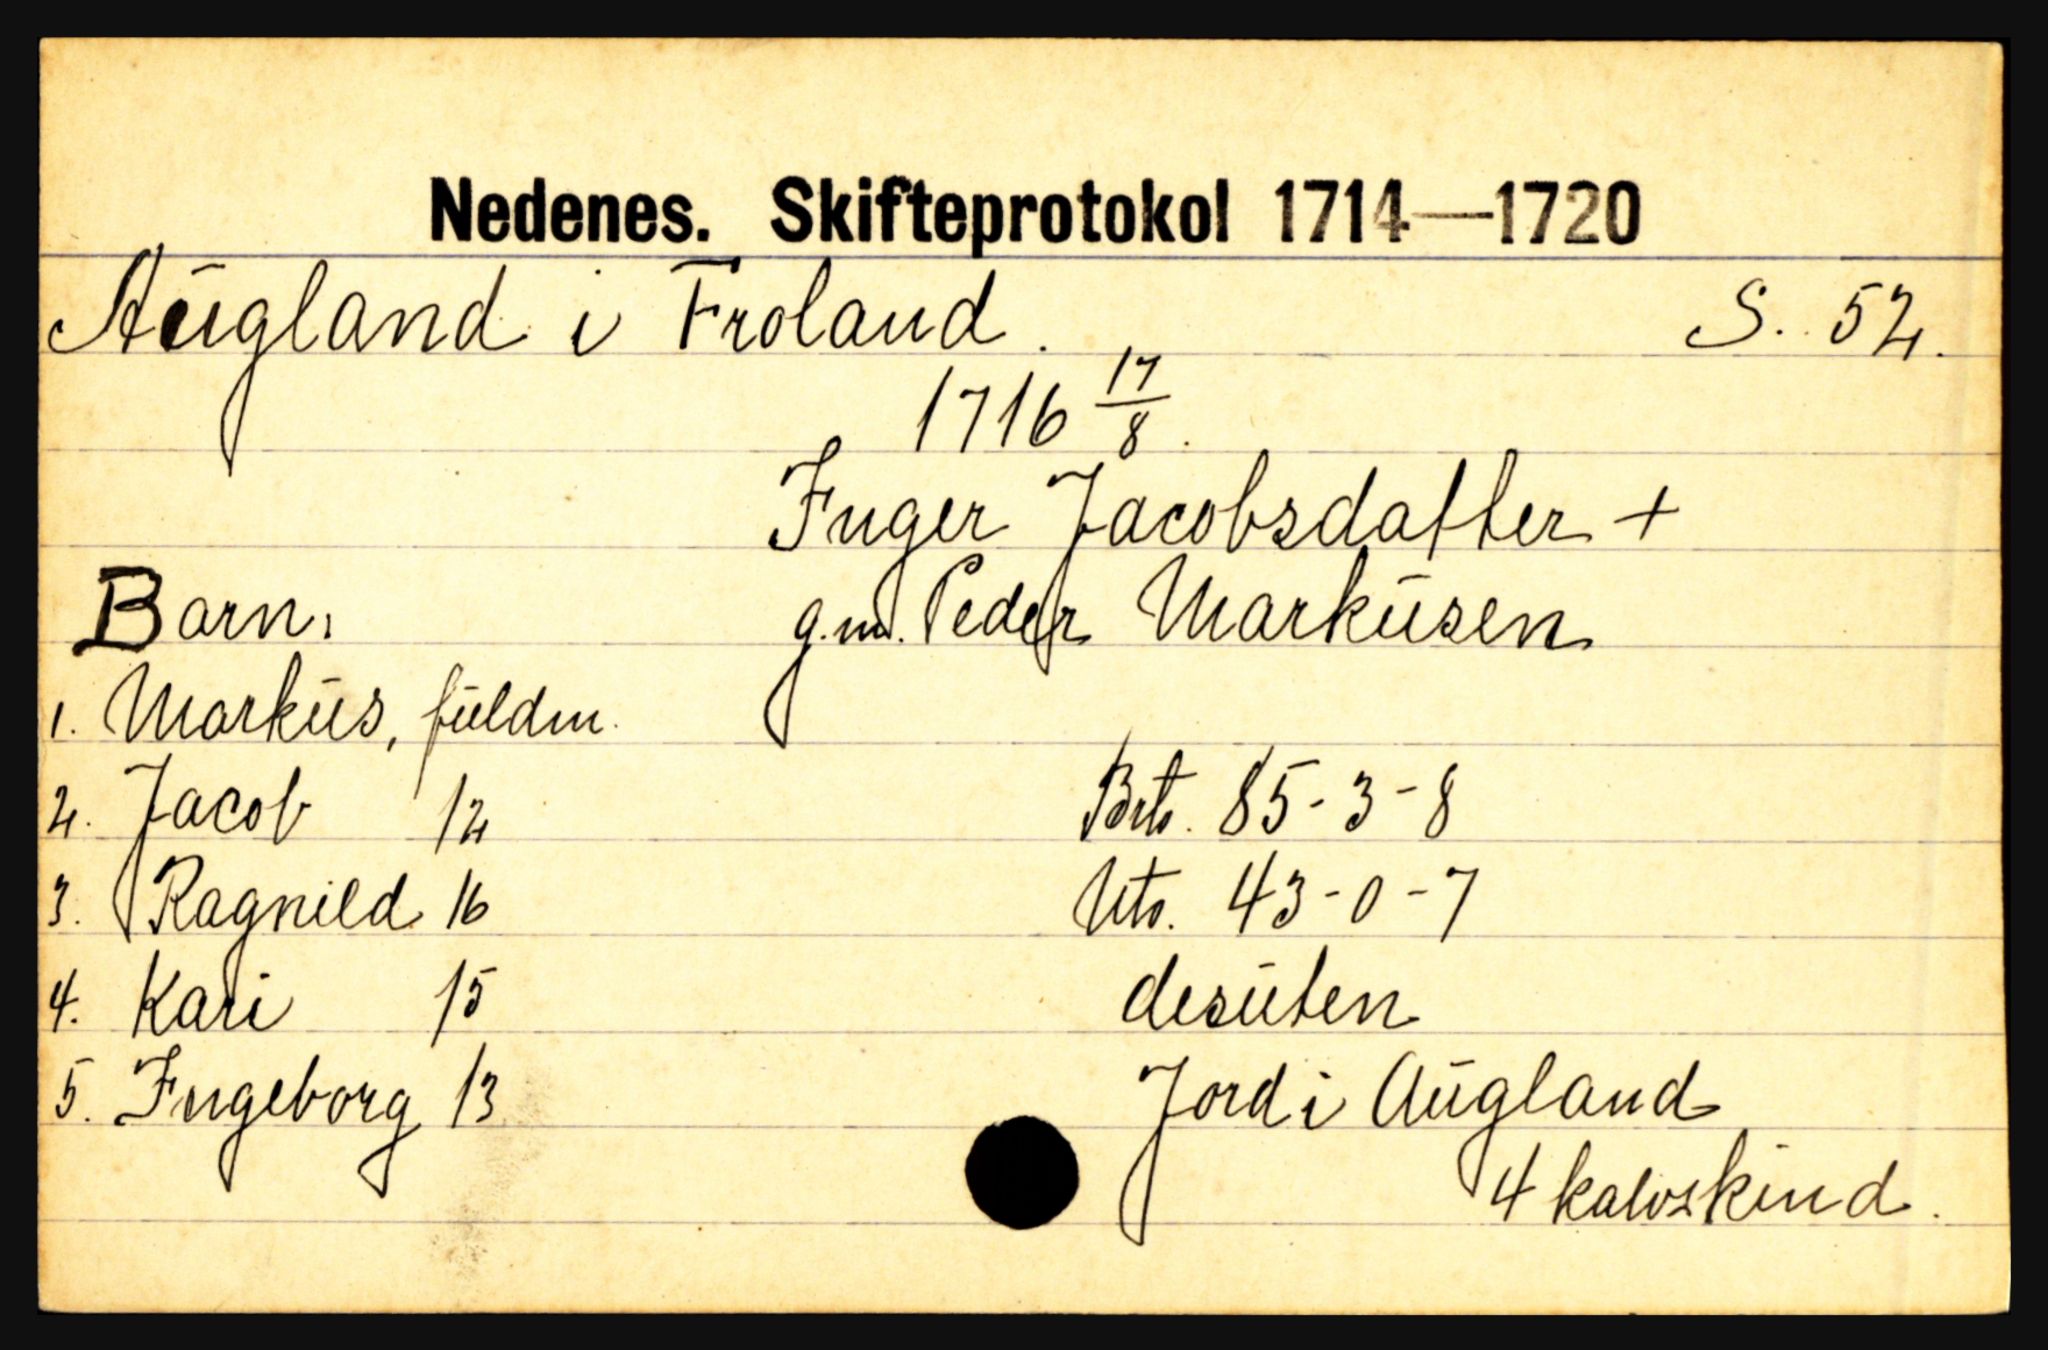 Nedenes. Skifteprotokol 1714—1720
Augland i Froland. S. 52.
1716 17/8.
Inger Jacobsdatter +
g.m. Peder Markusen
Barn:
1. Markus, fuldm.
2. Jacob 12
3. Ragnild 16
4. Kari 15
5. Ingeborg 13
Brto. 85-3-8
Nto. 43-0-7
desuten
Jord i Augland
4 kalvskind.